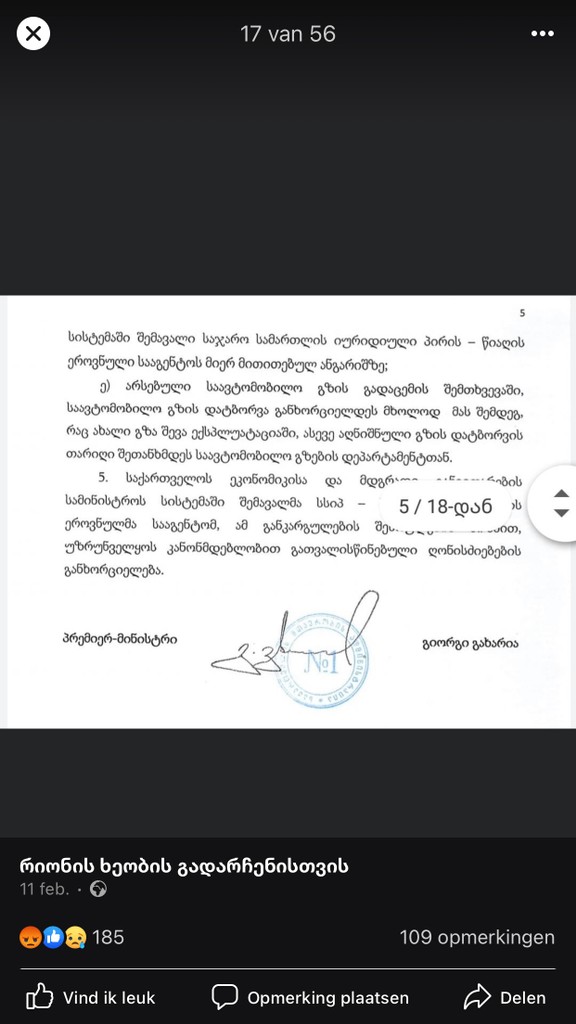 17 van 56
5
სისტემაში შემავალი საჯარო სამართლის იურიდიული პირის – წიაღის
ეროვნული სააგენტოს მიერ მითითებულ ანგარიშზე;
ე) არსებული საავტომობილო გზის გადაცემის შემთხვევაში,
საავტომობილო გზის დატბორვა განხორციელდეს მხოლოდ მას შემდეგ,
რაც ახალი გზა შევა ექსპლუატაციაში, ასევე აღნიშნული გზის დატბორვის
თარიღი შეთანხმდეს საავტომობილო გზების დეპარტამენტთან.
5. საქართველოს ეკონომიკისა და
სამინისტროს სისტემაში შემავალმა სსიპ –
5 / 18-დან
ეროვნულმა სააგენტომ, ამ განკარგულების
უზრუნველყოს კანონმდებლობით გათვალისწინებული ღონისძიებების
განხორციელება.
პრემიერ-მინისტრი
№1
გიორგი გახარია
რიონის ხეობის გადარჩენისთვის
11 feb.
185
109 opmerkingen
Vind ik leuk
Opmerking plaatsen
Delen